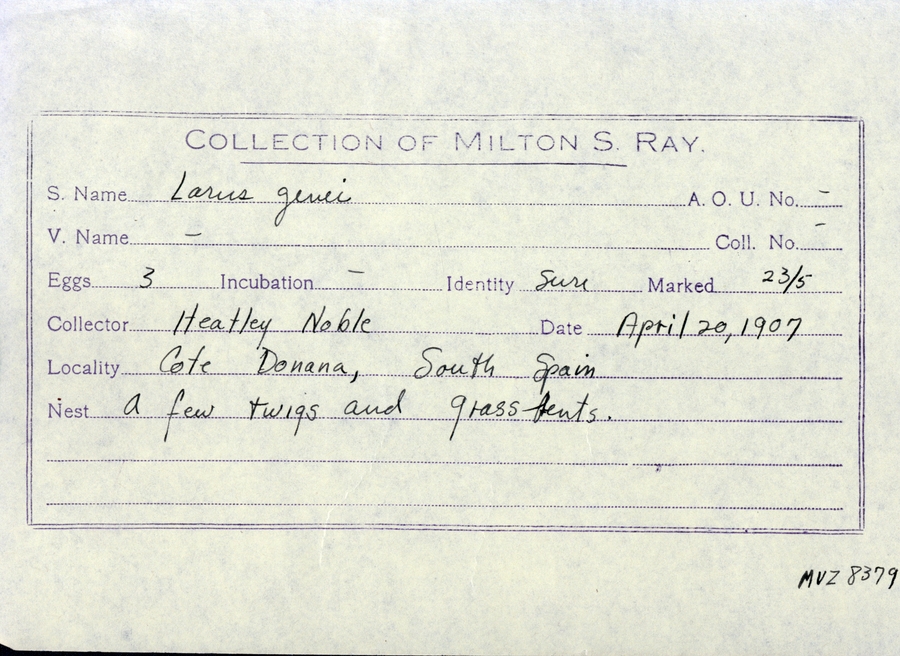 COLLECTION OF MILTON S. RAY.
S. Name Larus genei A. O. U. No. –
V. Name – Coll. No. –
Eggs 3 Incubation – Identity Sure Marked 23/5
Collector Heatley Noble Date April 20, 1907
Locality Cote Donana, South Spain
Nest a few twigs and grass bents.
MVZ 8379